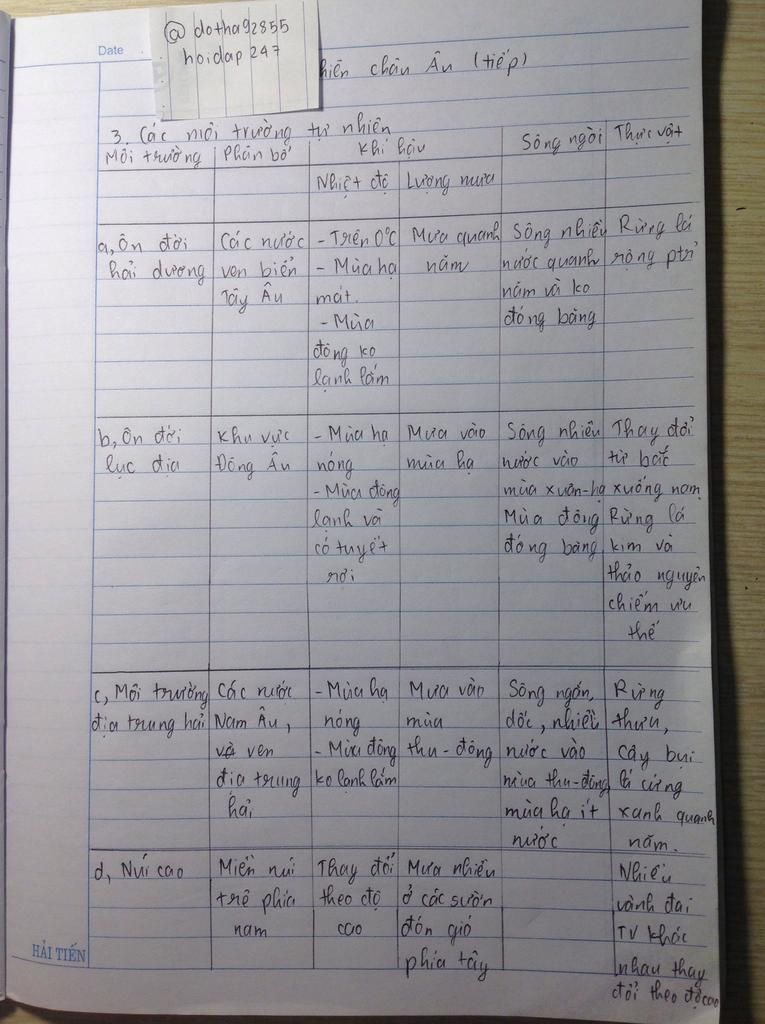 Date
@ dotha92855
hoidap 247
hiên châu Âu (tiếp)
3. Các môi trường tự nhiên
Môi trường
Phân bố
Khí hậu
Sông ngòi
Thực vật
Nhiệt độ
Lượng mưa
a, Ôn đới
hải dương
Các nước
ven biển
Tây Âu
- Trên 0°C
- Mùa hạ
mát.
- Mùa
đông ko
lạnh lắm
Mưa quanh
năm
Sông nhiều
nước quanh
năm và ko
đóng băng
Rừng lá
rộng ptr
b, Ôn đới
lục địa
Khu vực
Đông Âu
- Mùa hạ
nóng
- Mùa đông
lạnh và
có tuyết
rơi
Mưa vào
mùa hạ
Sông nhiều
nước vào
mùa xuân-hạ
Mùa đông
đóng băng
Thay đổi
từ bắc
xuống nam
Rừng lá
kim và
thảo nguyên
chiếm ưu
thế
c, Môi trường
địa trung hải
Các nước
Nam Âu,
và ven
địa trung
hải
- Mùa hạ
nóng
- Mùa đông
ko lạnh lắm
Mưa vào
mùa
thu-đông
Sông ngắn,
dốc, nhiều
nước vào
mùa thu-đông
mùa hạ ít
nước
Rừng
thưa,
cây bụi
lá cứng
xanh quanh
năm.
d, Núi cao
Miền núi
trẻ phía
nam
Thay đổi
theo độ
cao
Mưa nhiều
ở các sườn
đón gió
phía tây
Nhiều
vành đai
TV khác
nhau thay
đổi theo độ cao
HẢI TIẾN